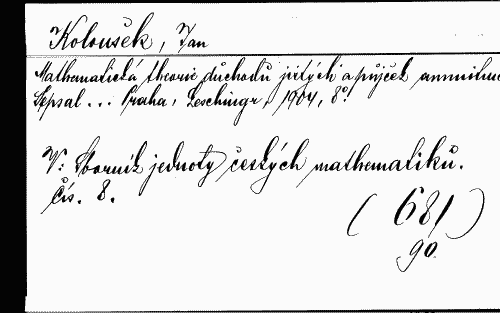 Koloušek, Jan
Mathematická theorie důchodů jistých a půjček annuitní
Sepsal... Praha, Leschingr, 1904, 8º.
V: Sborník jednoty českých mathematiků.
Čís. 8.
(681)
90.